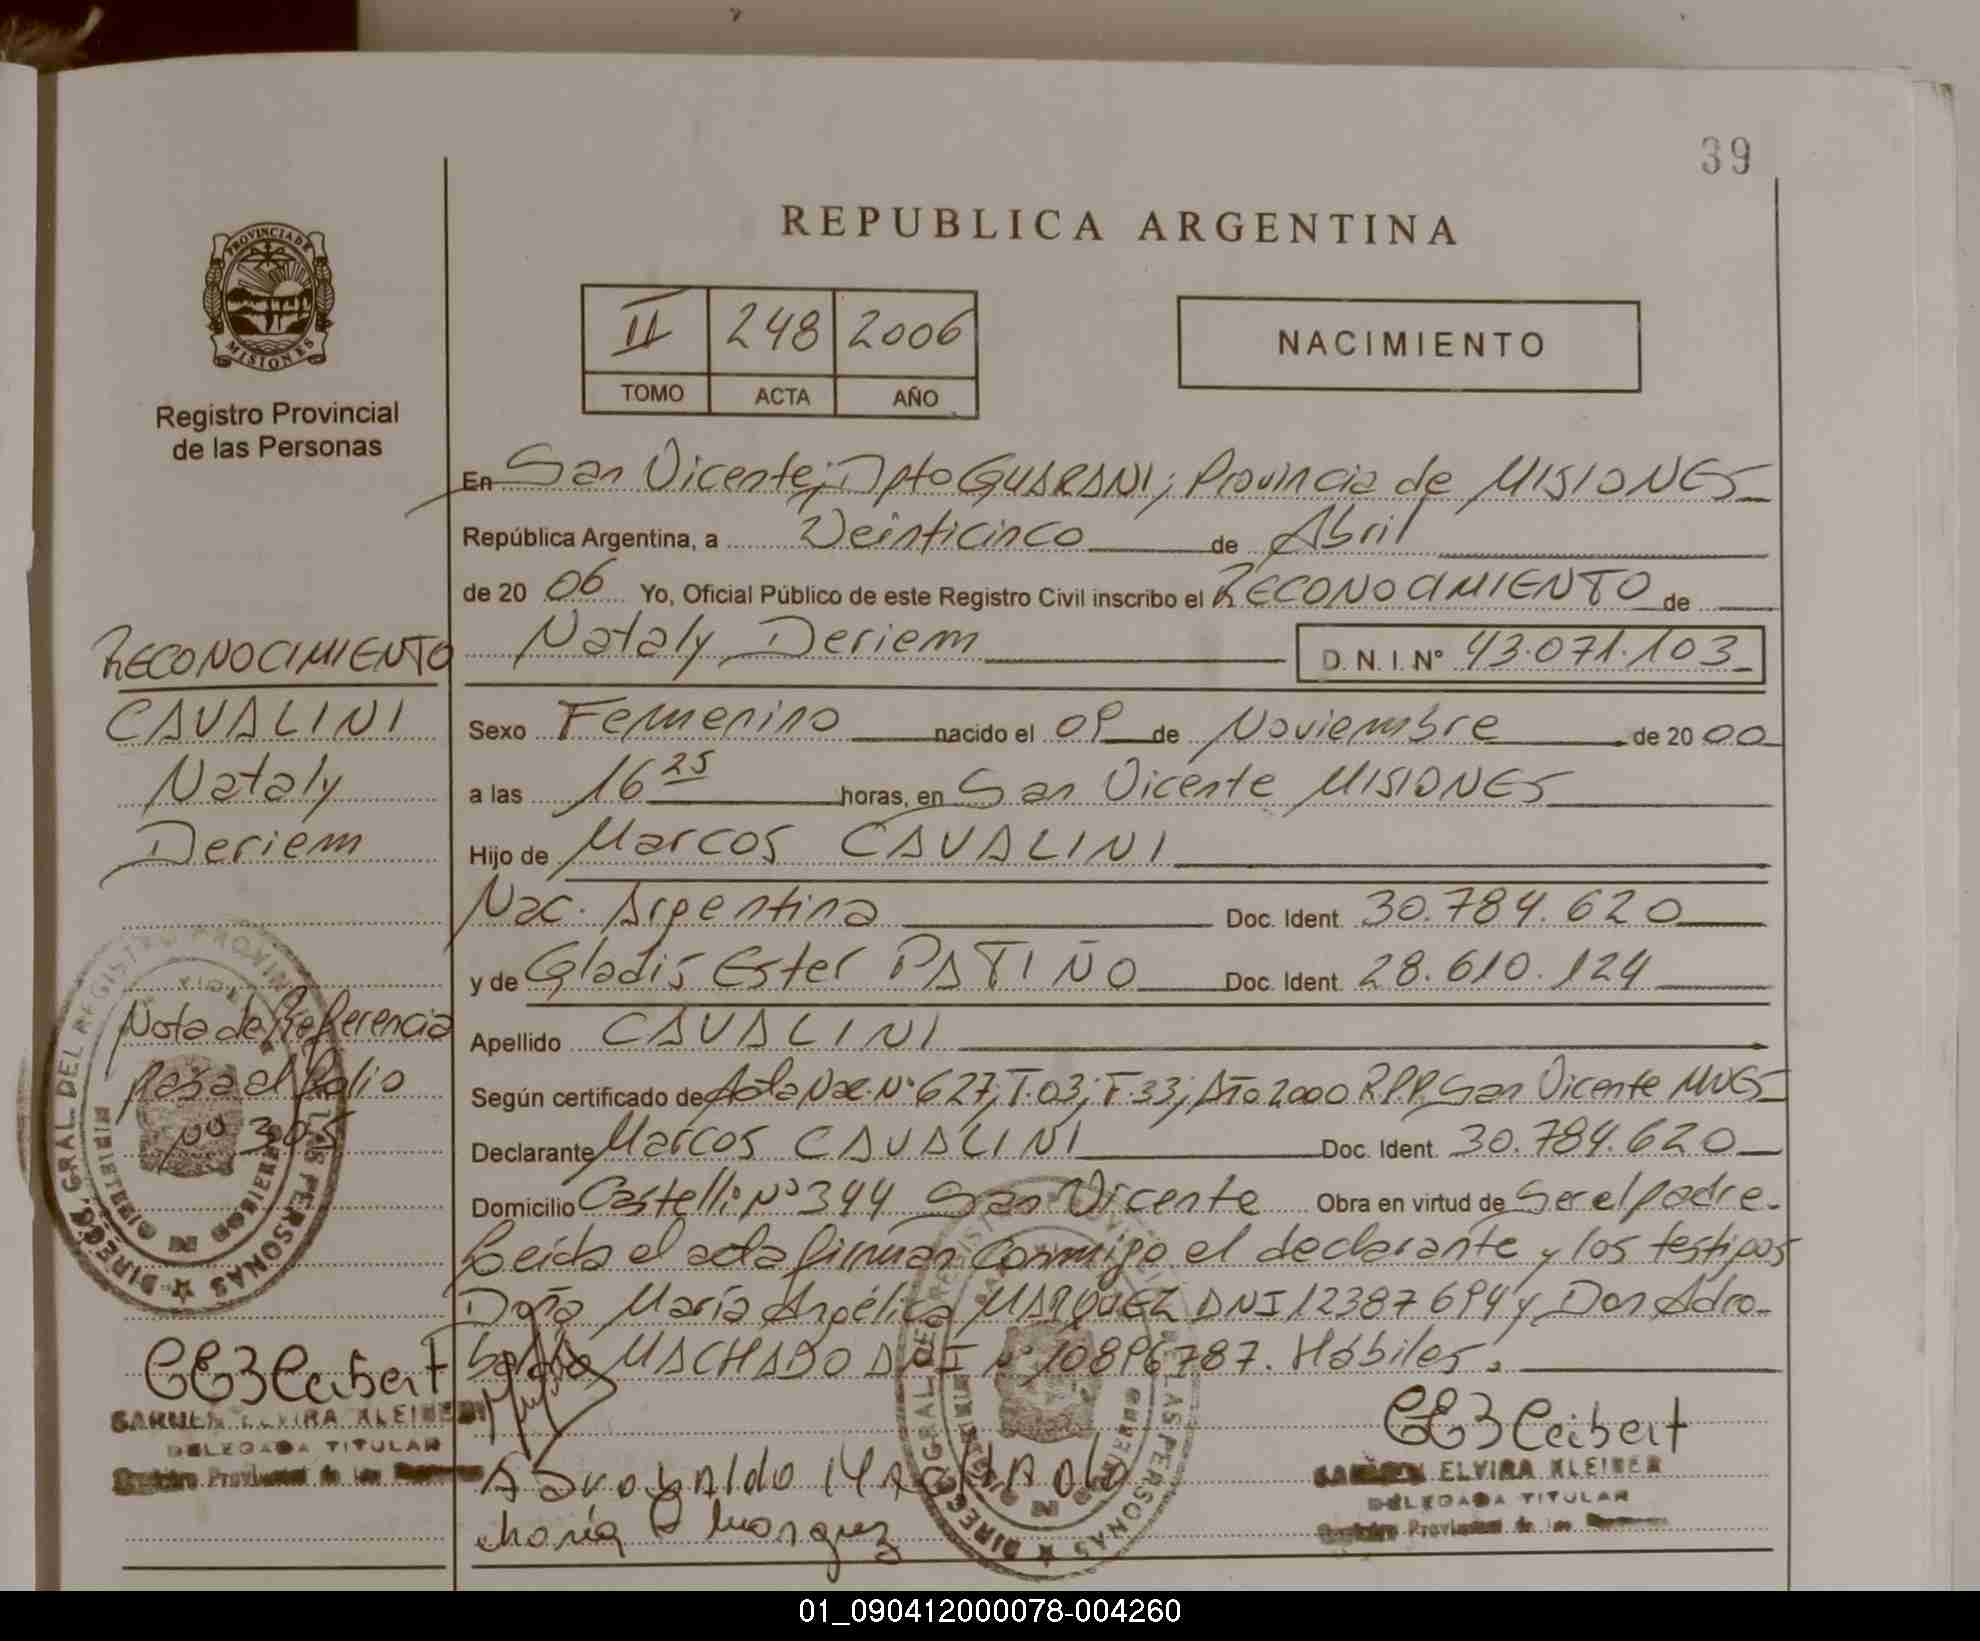 39
REPUBLICA ARGENTINA
PROVINCIA DE
MISIONES
Registro Provincial
de las Personas
II 248 2006
TOMO ACTA AÑO
NACIMIENTO
En San Vicente; Dpto GUARANI; Provincia de MISIONES
República Argentina, a Veinticinco de Abril
de 2006 Yo, Oficial Público de este Registro Civil inscribo el RECONOCIMIENTO de
Nataly Deriem D. N. I. Nº 43.071.103
Sexo Femenino nacido el 09 de Noviembre de 2000
a las 16 25 horas, en San Vicente MISIONES
Hijo de Marcos CAVALINI
Nac. Argentina Doc. Ident. 30.784.620
y de Gladis Ester PATIÑO Doc. Ident. 28.610.124
Apellido CAVALINI
Según certificado de Acta Nac. Nº 627; T.03; F.33; Año 2000 R.P.P. San Vicente MNES
Declarante Marcos CAVALINI Doc. Ident. 30.784.620
Domicilio Castelli Nº 344 San Vicente Obra en virtud de Ser el padre.
Leída el acta firman conmigo el declarante y los testigos
Doña María Angélica MARQUEZ DNI 12387694 y Don Adro-
baldo MACHADO DNI Nº 10896787. Hábiles.
RECONOCIMIENTO
CAVALINI
Nataly
Deriem
Nota de Referencia
Pasa al Folio
Nº 305
DIREC. GRAL. DEL REGISTRO PROVINCIAL DE LAS PERSONAS
CEB Leibert
CARMEN ELVIRA KLEINER
DELEGADA TITULAR
Registro Provincial de las Personas
Adrovaldo Machado
María A Marquez
DIREC. GRAL. DEL REGISTRO PROVINCIAL DE LAS PERSONAS
CEB Leibert
CARMEN ELVIRA KLEINER
DELEGADA TITULAR
Registro Provincial de las Personas
01_090412000078-004260